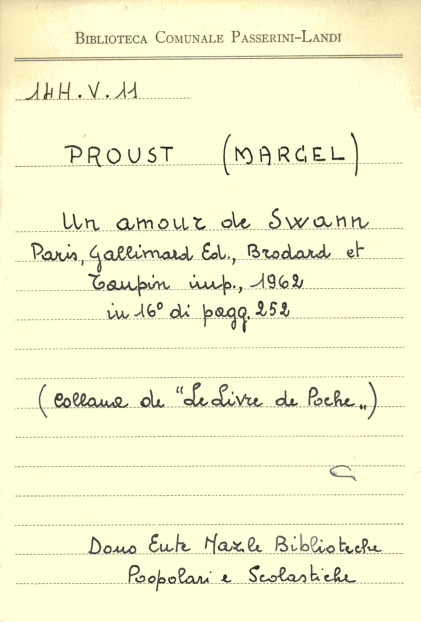 BIBLIOTECA COMUNALE PASSERINI-LANDI
14H.V.11
PROUST (MARCEL)
Un amour de Swann
Paris, Gallimard Ed., Brodard et
Taupin imp., 1962
in 16° di pagg. 252
(Collana de "Le Livre de Poche„)
Dono Ente Naz.le Biblioteche
Popolari e Scolastiche